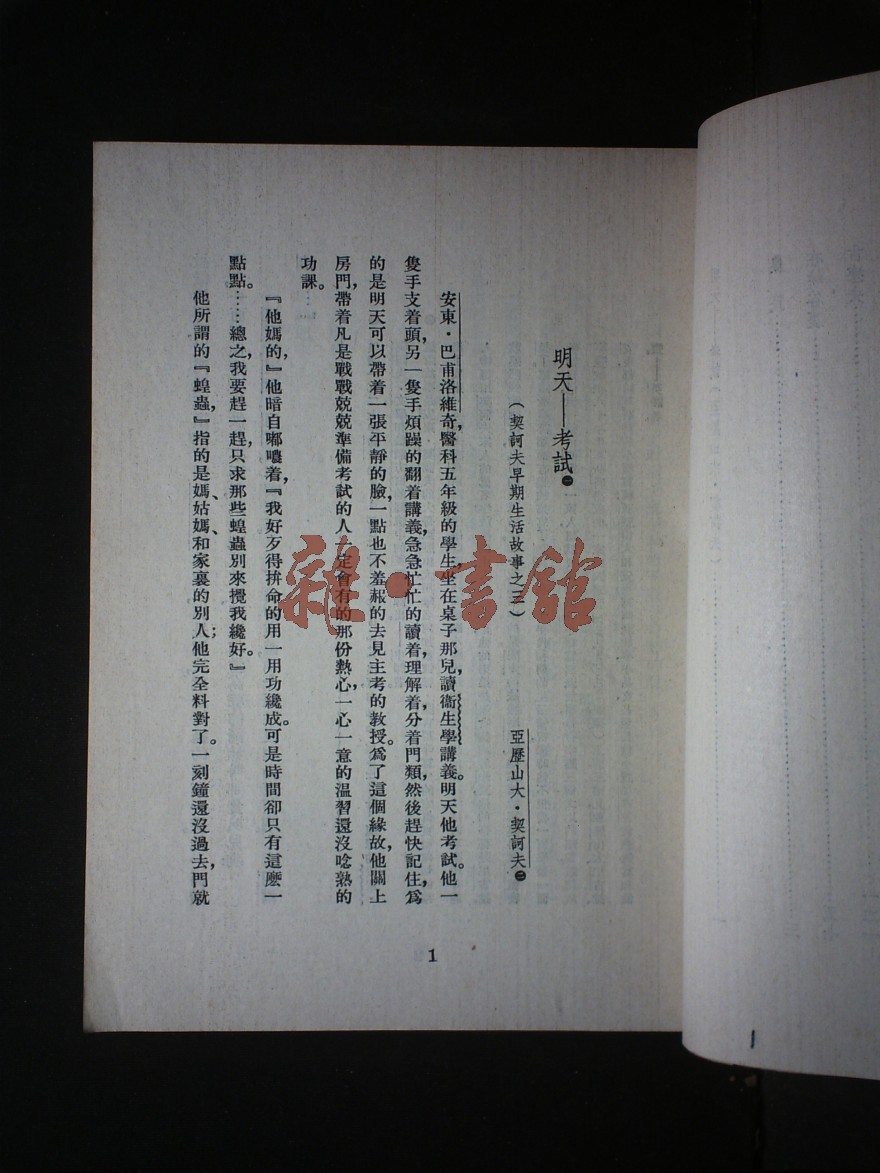 明天——考試㊀
（契訶夫早期生活故事之三）
亞歷山大·契訶夫㊁
安東·巴甫洛維奇，醫科五年級的學生，坐在桌子那兒，讀衞生學講義。明天他考試。他一
隻手支着頭，另一隻手煩躁的翻着講義，急急忙忙的讀着，理解着，分着門類，然後趕快記住，爲
的是明天可以帶着一張平靜的臉，一點也不羞赧的去見主考的教授。爲了這個緣故，他關上
房門，帶着凡是戰戰兢兢準備考試的人一定會有的那份熱心，一心一意的温習還沒唸熟的
功課。……
『他媽的，』他暗自嘟囔着，『我好歹得拚命的用一用功纔成。可是時間卻只有這麽一
點點。……總之，我要趕一趕，只求那些蝗蟲別來攪我纔好。』
他所謂的『蝗蟲，』指的是媽、姑媽、和家裏的別人；他完全料對了。一刻鐘還沒過去，門就
1
雜·書館